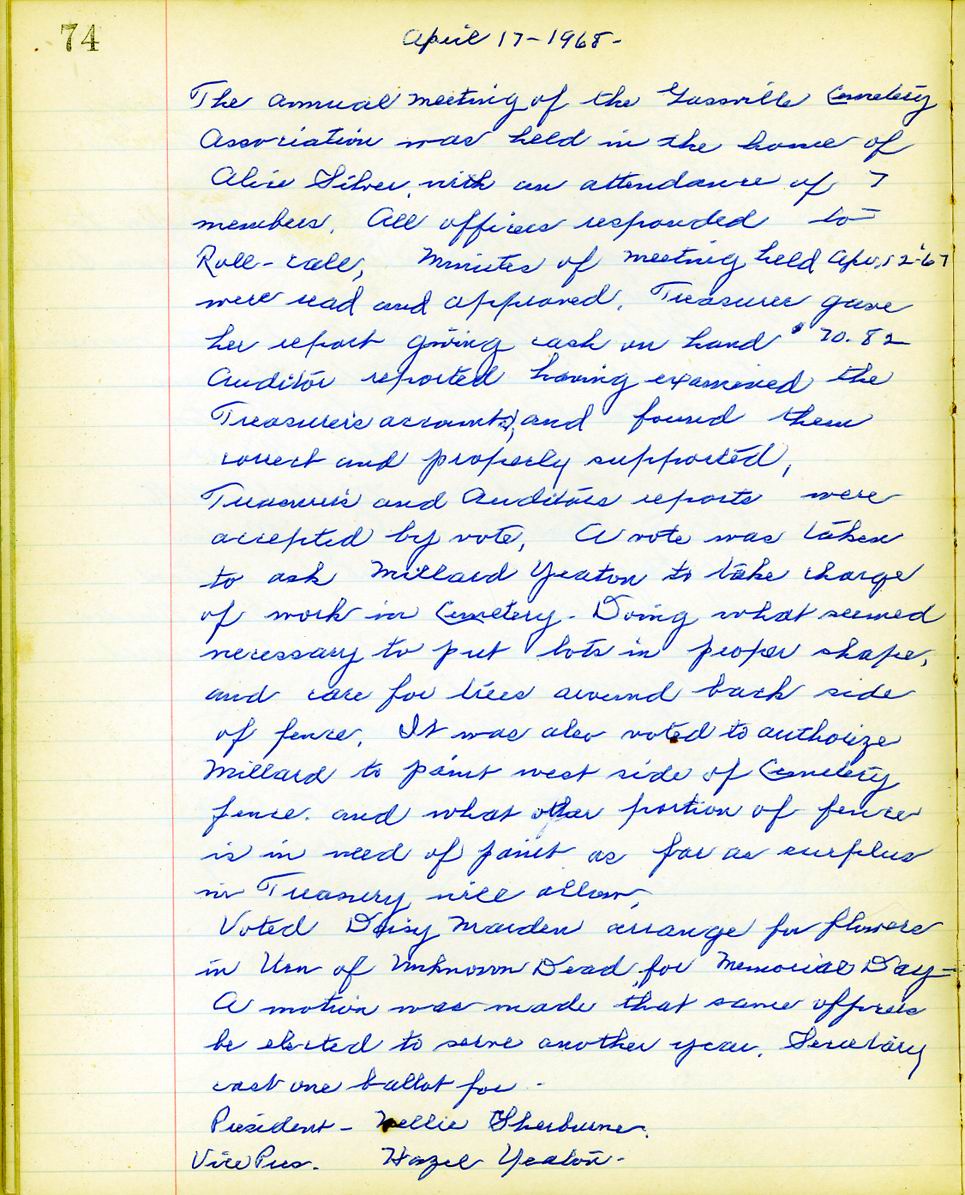 74
April 17-1968-
The annual meeting of the Gossville Cemetery
Association was held in the home of
Alice Silver, with an attendance of 7
members. All officers responded to
Roll-call, Minutes of meeting held Apr. 12-67
were read and approved. Treasurer gave
her report giving cash on hand $70.82
Auditor reported having examined the
Treasurers accounts, and found them
correct and properly supported,
Treasurer's and Auditors reports were
accepted by vote, A vote was taken
to ask Millard Yeaton to take charge
of work in Cemetery - Doing what seemed
necessary to put lots in proper shape,
and care for trees around back side
of fence, It was also voted to authorize
Millard to paint west side of Cemetery
fence. and what other portion of fence
is in need of paint as far as surplus
in Treasury will allow,
Voted Daisy Marden arrange for flowers
in Urn of Unknown Dead for Memorial Day-
A motion was made that same officers
be elected to serve another year. Secretary
cast one ballot for -
President - Nellie Sherburne.
Vice Pres. Hazel Yeaton -